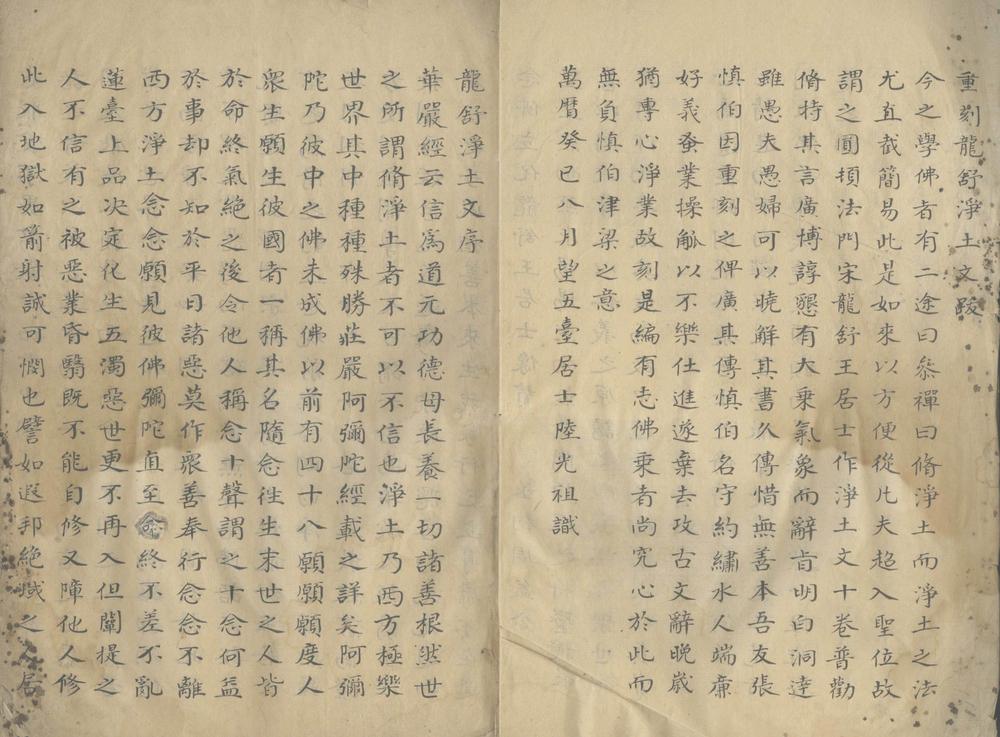 重刻龍舒淨土文跋
今之學佛者有二途曰叅禪曰脩淨土而淨土之法
尤直截簡易此是如來以方便從凡夫超入聖位故
謂之圓頓法門宋龍舒王居士作淨土文十卷普勸
脩持其言廣博諄懇有大乗氣象而辭旨明白洞達
雖愚夫愚婦可以曉解其書久傳惜無善本吾友張
慎伯因重刻之俾廣其傳慎伯名守約繡水人端亷
好義蚤業操觚以不樂仕進遂棄去攻古文辭晚歲
猶專心淨業故刻是編有志佛乗者尚究心於此而
無負慎伯津梁之意
萬曆癸巳八月望五臺居士陸光祖識
龍舒淨土文序
華嚴經云信爲道元功德母長養一切諸善根然世
之所謂脩淨土者不可以不信也淨土乃西方極樂
世界其中種種殊勝莊嚴阿彌陀經載之詳矣阿彌
陀乃彼中之佛未成佛以前有四十八願願願度人
衆生願生彼國者一稱其名隨念徃生末世之人皆
於命終氣絶之後令他人稱念十聲謂之十念何益
於事却不知於平日諸惡莫作衆善奉行念念不離
西方淨土念念願見彼佛彌陀直至命終不差不亂
蓮臺上品决定化生五濁惡世更不再入但闡提之
人不信有之被惡業昏翳既不能自修又障他人修
此入地獄如箭射誠可憫也譬如遐邦絶域之人居